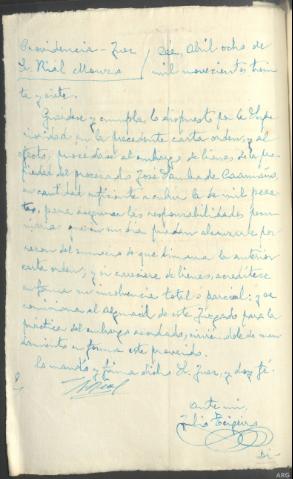 Providencia - Juez
Sr. Vidal Moure
Abril ocho de
mil novecientos trein
ta y siete.
Guárdese y cumpla lo dispuesto por la Supe
rioridad en la precedente carta orden, y al
efecto, procédase al embargo de bienes de la pro
piedad del procesado José
en cantidad suficiente a cubrir la de mil pese
tas, para asegurar las responsabilidades pecu
niarias que en su día puedan alcanzarle por
razon del sumario de que dimana la anterior
carta orden, y si careciere de bienes, acredítese
en forma su insolvencia total o parcial; y se
comisiona al alguacil de este Juzgado para la
práctica del embargo acordado, sirviendole de man
damiento en forma este proveido.
Lo mandó y firma dicho Sr. Juez, y doy fé.
Ante mi,
Di-
ARG